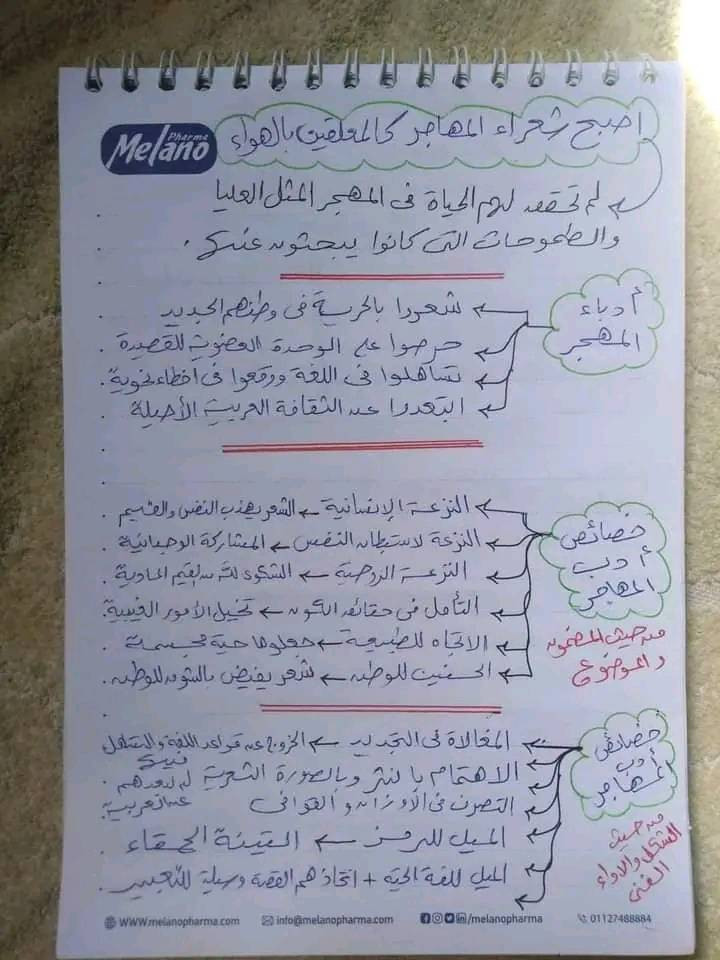 Melano Pharma
اصبح شعراء المهاجر كالمعلقين بالهواء
لم تحقق لهم الحياة فى المهجر المثل العليا
والطموحات التى كانوا يبحثون عنها.
أدباء
المهجر
شعروا بالحرية فى وطنهم الجديد
حرصوا على الوحدة العضوية للقصيدة
تساهلوا فى اللغة ووقعوا فى أخطاء نحوية
ابتعدوا عن الثقافة العربية الأصيلة
خصائص
أدب
المهاجر
من حيث المضمون
والموضوع
النزعة الإنسانية ← الشعر يهذب النفس والقيم
النزعة لاستبطان النفس ← المشاركة الوجدانية
النزعة الروحية ← الشكوى لله من القيم المادية
التأمل فى حقائق الكون ← تخيل الأمور الغيبية
الاتجاه للطبيعة ← جعلوها حية مجسمة
الحنين للوطن ← شعر يفيض بالشوق للوطن
خصائص
أدب
المهاجر
من حيث
الشكل والاداء
الفنى
المغالاة فى التجديد ← الخروج عن قواعد اللغة والتساهل
فيها لبعدهم
عن العربية
الاهتمام بالنثر وبالصورة الشعرية
التصرف فى الأوزان والقوافى
الميل للرمز ← التينة الحمقاء
الميل للغة الحية + اتخاذهم القصة وسيلة للتعبير
WWW.melanopharma.com info@melanopharma.com /melanopharma 01127488884